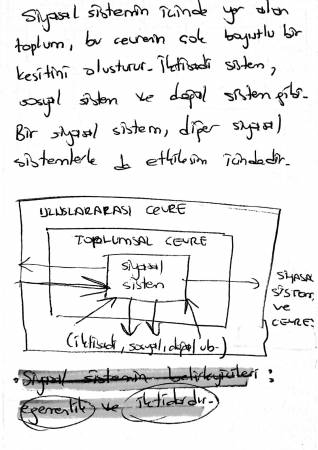 Siyasal sistemin içinde yer alan
toplum, bu çevrenin çok boyutlu bir
kesitini oluşturur. İktisadi sistem,
sosyal sistem ve doğal sistem gibi.
Bir siyasal sistem, diğer siyasal
sistemlerle de etkileşim içindedir.
ULUSLARARASI ÇEVRE
TOPLUMSAL ÇEVRE
siyasal
sistem
SİYASAL
SİSTEM
VE
ÇEVRE
(iktisadi, sosyal, doğal vb.)
Siyasal sistemin belirleyicileri:
egemenlik ve iktidardır.